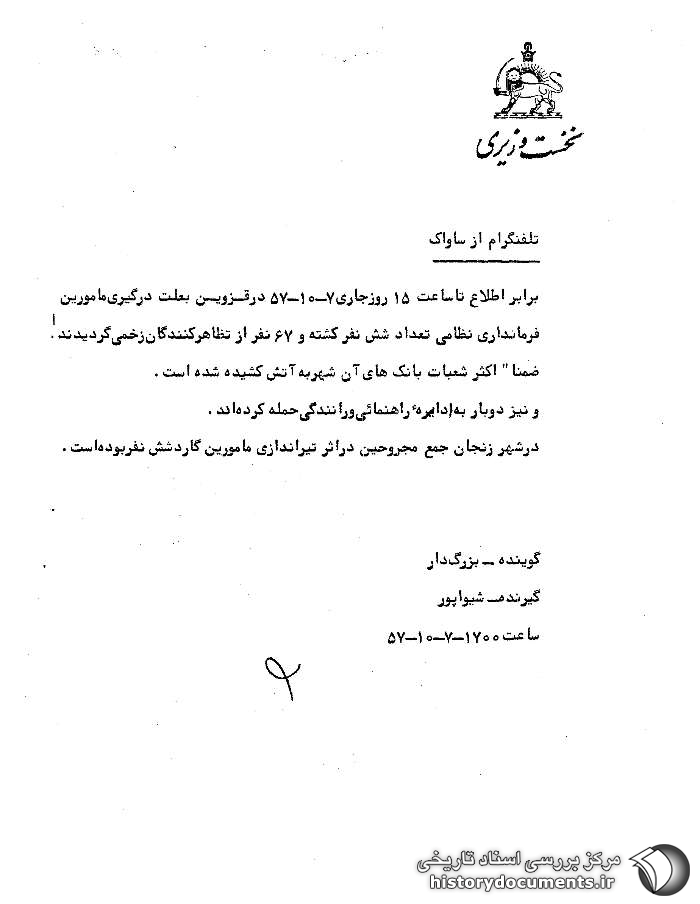 نخست وزیری
تلفنگرام از ساواک
برابر اطلاع تا ساعت ۱۵ روز جاری ۷-۱۰-۵۷ در قزوین بعلت درگیری مامورین
فرمانداری نظامی تعداد شش نفر کشته و ۶۷ نفر از تظاهرکنندگان زخمی گردیدند.
ضمنا" اکثر شعبات بانک های آن شهر به آتش کشیده شده است.
و نیز دوبار به اداره راهنمائی ورانندگی حمله کرده‌اند.
در شهر زنجان جمع مجروحین در اثر تیراندازی مامورین گارد شش نفر بوده است.
گوینده - بزرگ‌دار
گیرنده - شیواپور
ساعت ۱۷۰۰-۷-۱۰-۵۷
مرکز بررسی اسناد تاریخی
historydocuments.ir